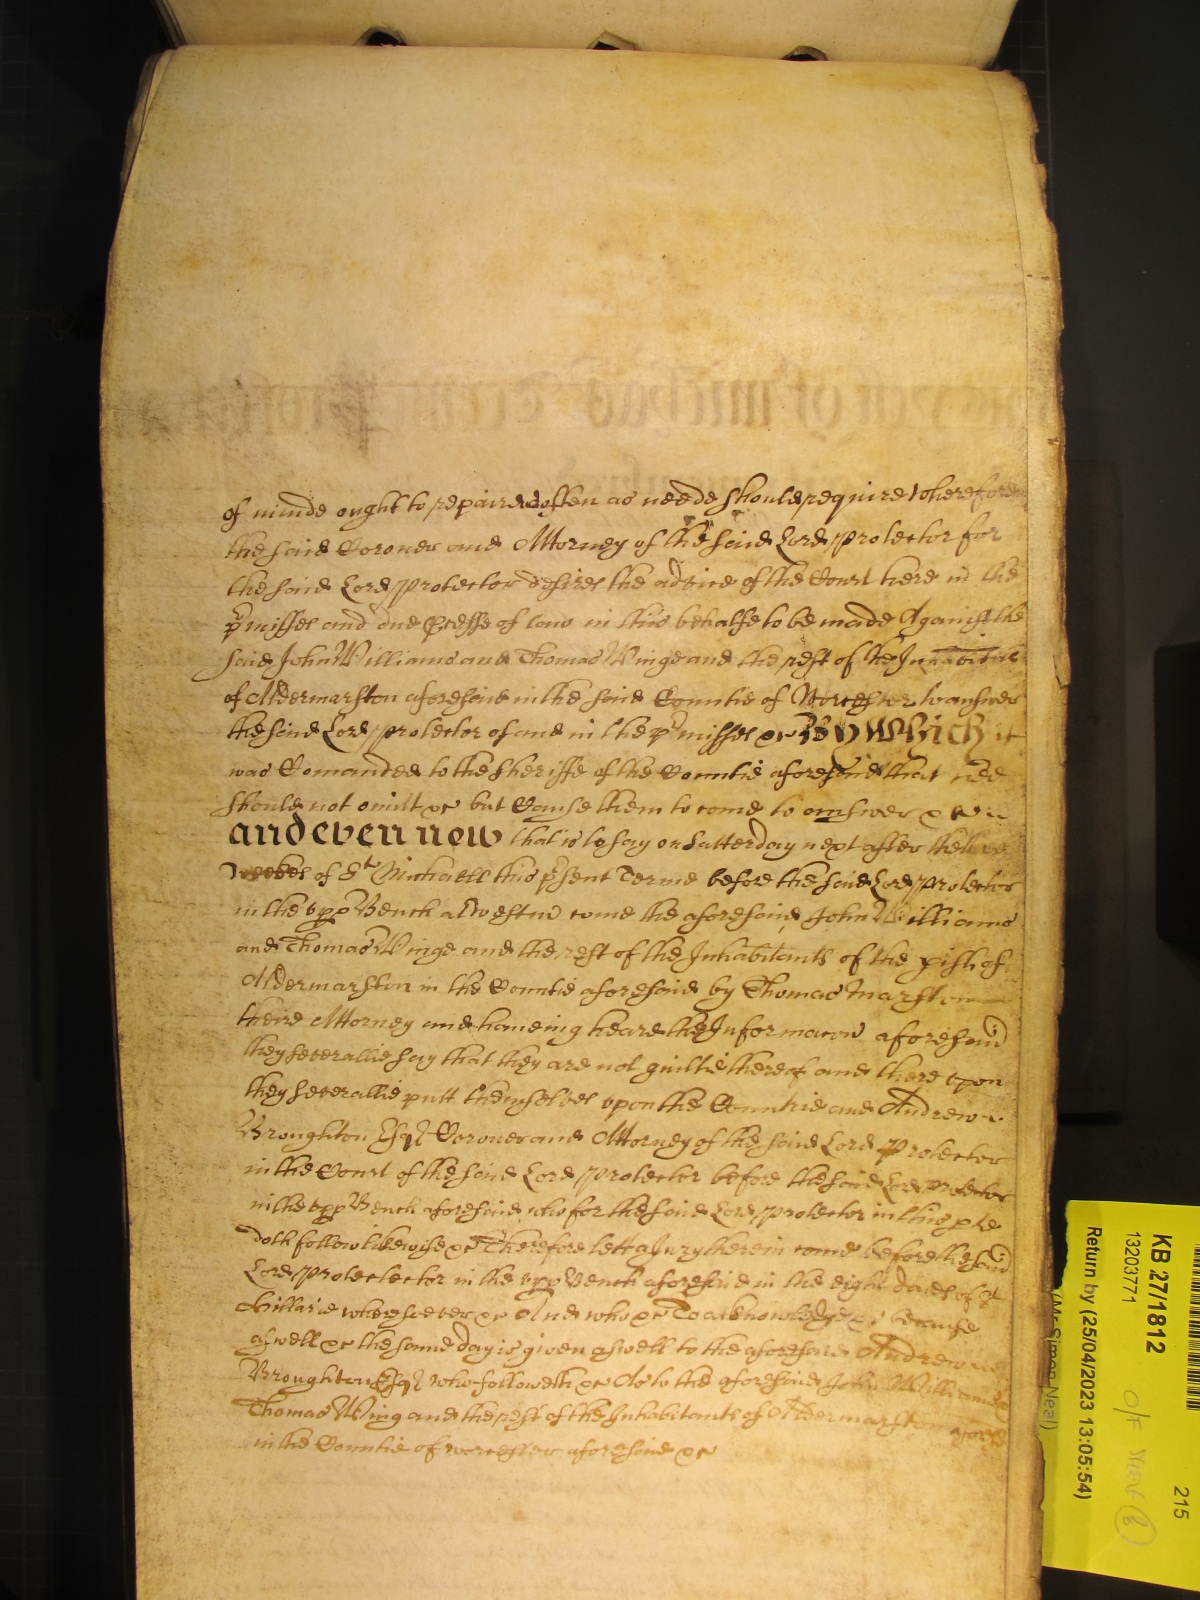 of minde ought to repaire as often as neede should require Wherefore
the said Coroner and Attorney of the said Lord Protector for
the said Lord Protector desires the advice of the Court here in the
p'misses and due p'cesse of law in this behalfe to be made Against the
said John Williams and Thomas Winge and the rest of the Inhabitants
of Aldermarston aforesaid in the said Countie of Worcester to answer
the said Lord Protector of and in the p'misses &c By Which it
was Comanded to the Sheriffe of the Countie aforesaid that hee
should not omitt &c but Cause them to come to answer &c
and even now that is to say on Satterday next after three
weekes of St Michaell this p'sent Terme before the said Lord Protector
in the vpp Bench at Westm' come the aforesaid John Williams
and Thomas Winge and the rest of the Inhabitants of the pish of
Aldermarston in the Countie aforesaid by Thomas Marston
theire Attorney and haueing heard the Informacon aforesaid
they severallie say that they are not guiltie thereof and there vpon
they severallie putt themselves vpon the Countrie and Andrew
Broughton Esqr Coroner and Attorney of the said Lord Protector
in the Court of the said Lord Protector before the said Lord Protector
in the vpp Bench aforesaid who for the said Lord Protector in this p'te
doth follow likewise &c Therefore lett a Jury therein come before the said
Lord Protectector in the vpp Bench aforesaid in the eight daies of St
Hillarie wheresoever &c And who &c To acknowledge &c because
aswell &c the same day is given aswell to the aforesaid Andrew
Broughton Esqr who followeth &c As to the aforesaid John Williams
Thomas Wing and the rest of the Inhabitants of Aldermarston
in the Countie of Worcester aforesaid &c
KB 27/1812
215
13203771
Return by (25/04/2023 13:05:54)
(Mr Simon Neal)